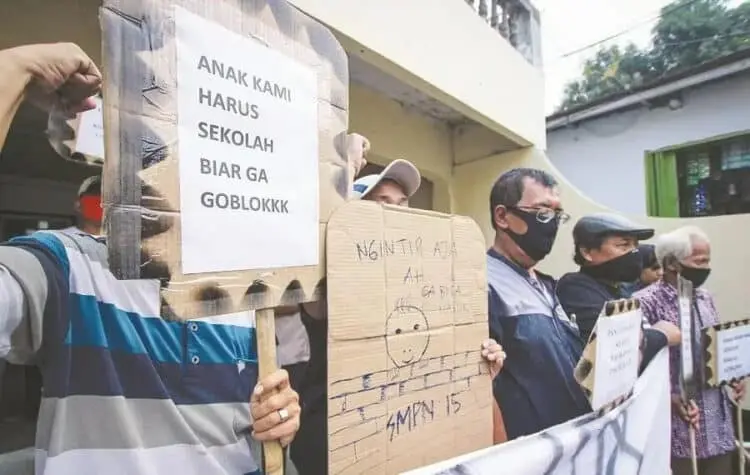 ANAK KAMI
HARUS
SEKOLAH
BIAR GA
GOBLOKKK
NGINTIP AJA
AH
GA BISA
SMPN 15